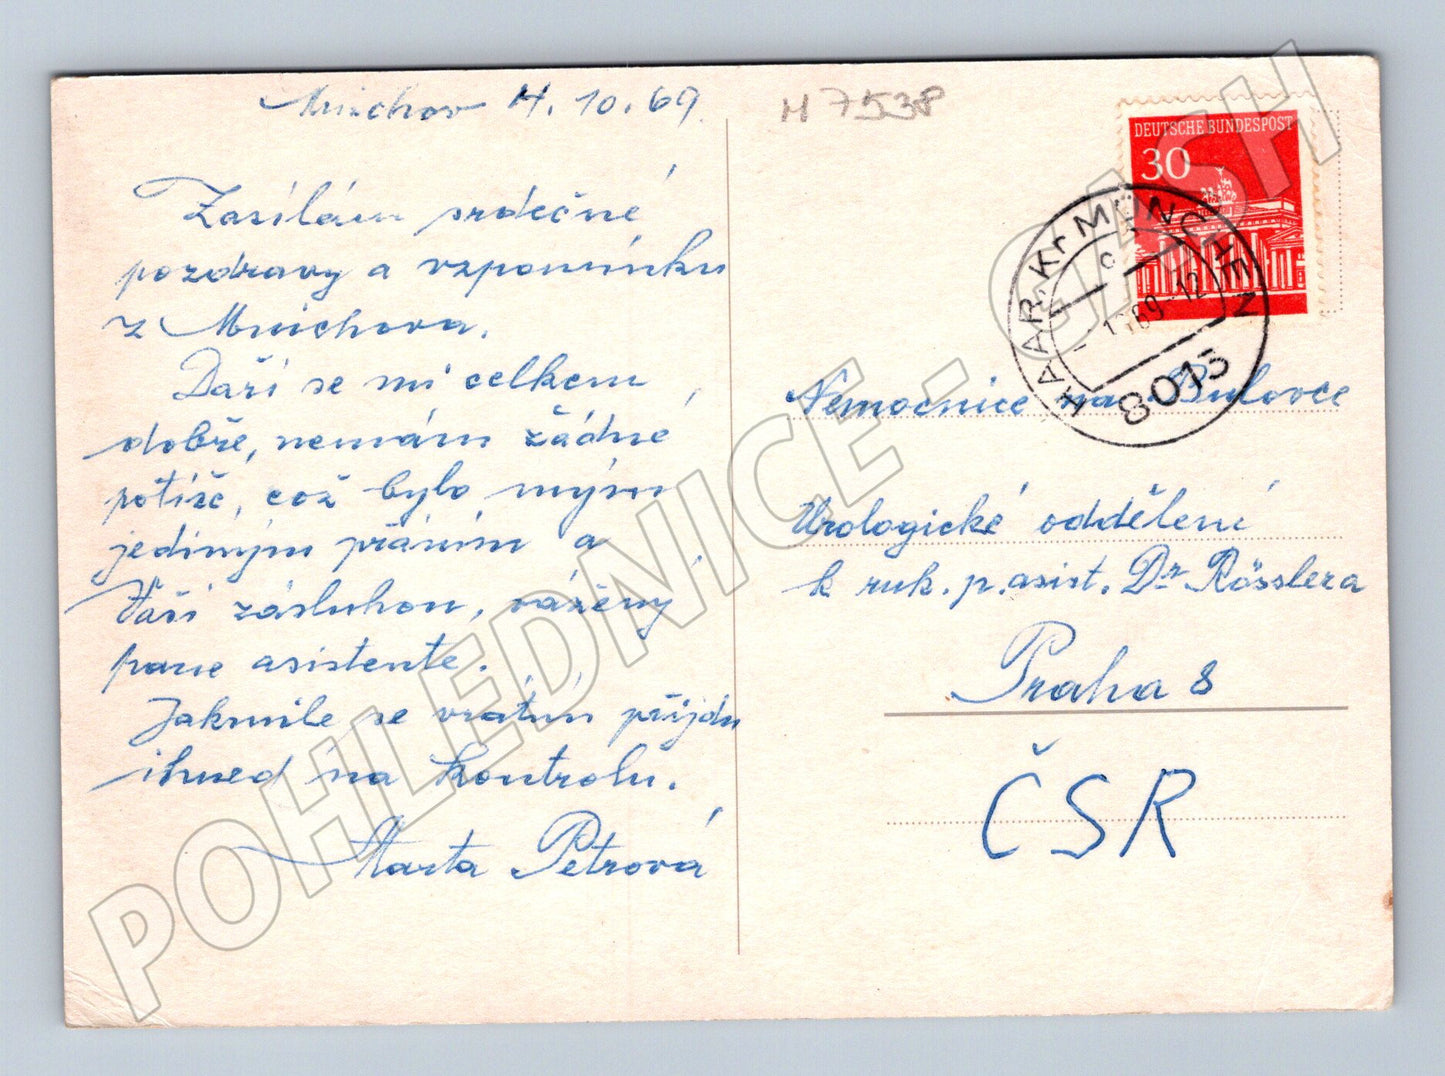 Mnichov 4. 10. 69.
H 7538
Zasílám srdečné
pozdravy a vzpomínku
z Mnichova.
Daří se mi celkem
dobře, nemám žádné
potíže, což bylo mým
jediným přáním a
Vaší zásluhou, vážený
pane asistente.
Jakmile se vrátím přijdu
ihned na kontrolu.
Marta Petrová
DEUTSCHE BUNDESPOST
30
HAAR, Kr MÜNCHEN
69-12
8013
Nemocnice na Bulovce
Urologické oddělení
k ruk. p. asist. Dr Rösslera
Praha 8
ČSR
POHLEDNICE - CASH